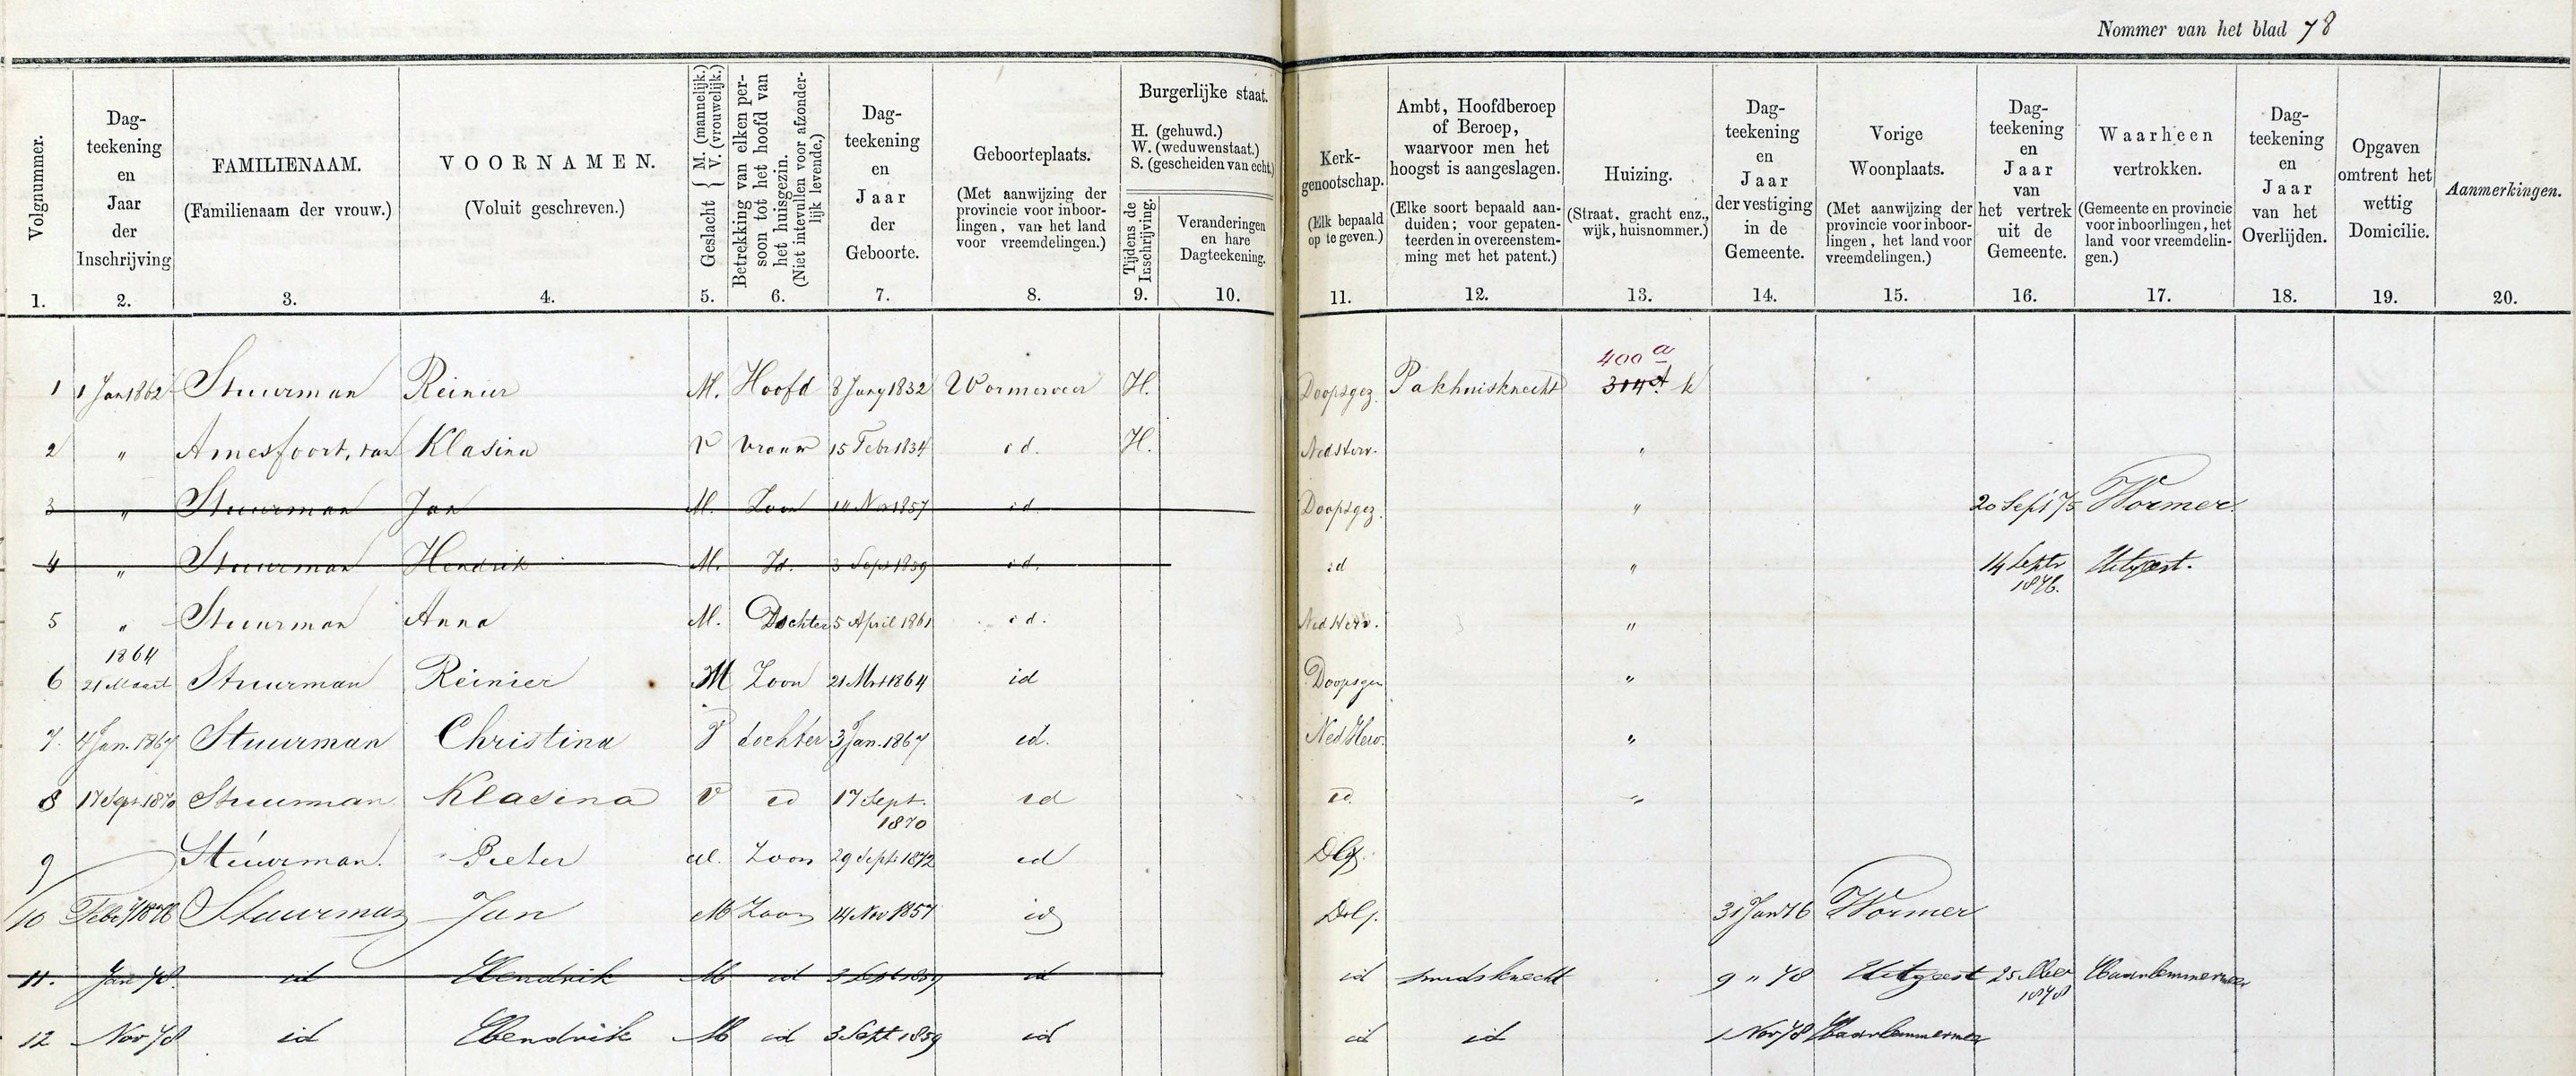 Nommer van het blad 78
Volgnummer.
Dag-
teekening
en
Jaar
der
Inschrijving
FAMILIENAAM.
(Familienaam der vrouw.)
VOORNAMEN.
(Voluit geschreven.)
Geslacht { M. (mannelijk.) V. (vrouwelijk.)
Betrekking van elken per-
soon tot het hoofd van
het huisgezin.
(Niet intevullen voor afzonder-
lijk levende.)
Dag-
teekening
en
Jaar
der
Geboorte.
Geboorteplaats.
(Met aanwijzing der
provincie voor inboor-
lingen, van het land
voor vreemdelingen.)
Burgerlijke staat.
H. (gehuwd.)
W. (weduwenstaat.)
S. (gescheiden van echt.)
Tijdens de
Inschrijving.
Veranderingen
en hare
Dagteekening.
Kerk-
genootschap.
(Elk bepaald
op te geven.)
Ambt, Hoofdberoep
of Beroep,
waarvoor men het
hoogst is aangeslagen.
(Elke soort bepaald aan-
duiden; voor gepaten-
teerden in overeenstem-
ming met het patent.)
Huizing.
(Straat, gracht enz.,
wijk, huisnommer.)
Dag-
teekening
en
Jaar
der vestiging
in de
Gemeente.
Vorige
Woonplaats.
(Met aanwijzing der
provincie voor inboor-
lingen, het land voor
vreemdelingen.)
Dag-
teekening
en
Jaar
van
het vertrek
uit de
Gemeente.
Waarheen
vertrokken.
(Gemeente en provincie
voor inboorlingen, het
land voor vreemdelin-
gen.)
Dag-
teekening
en
Jaar
van het
Overlijden.
Opgaven
omtrent het
wettig
Domicilie.
Aanmerkingen.
1. 2. 3. 4. 5. 6. 7. 8. 9. 10. 11. 12. 13. 14. 15. 16. 17. 18. 19. 20.
400 a
1 1 Jan 1862 Stuurman Reinier M. Hoofd 8 Juny 1832 Wormerveer H. Doopsgez. Pakhuisknecht 314 A k
2 " Amesfoort, van Klasina V vrouw 15 Febr 1834 id. H. Ned Herv. "
3 " Stuurman Jan M. Zoon 14 Nov 1857 id. Doopsgez. " 20 Sept 75 Wormer.
4 " Stuurman Hendrik M. Id. 3 Sept 1859 id. id " 14 Septr 1876. Uitgeest.
5 " Stuurman Anna M. Dochter 5 April 1861 id. Ned Herv. "
1864
6 21 Maart Stuurman Reinier M Zoon 21 Mrt 1864 id Doopsgez "
7. 4 Jan. 1867 Stuurman Christina V dochter 3 Jan. 1867 id. Ned Herv. "
8 17 Sept 1870 Stuurman Klasina V id 17 Sept. 1870 id id. "
9 Stuurman. Pieter M. Zoon 29 Sept 1872 id Dg.
10 Febr 1876 Stuurman Jan M Zoon 14 Nov 1857 id 31 Jan 76 Wormer
11. Jan 78. id Hendrik M id 3 Sept 1859 id id smidsknecht 9 " 78 Uitgeest 25 1878 Haarlemmermeer
12 Nov 78 id Hendrik M id 3 Sept 1859 id id id 1 Nov 78 Haarlemmermeer